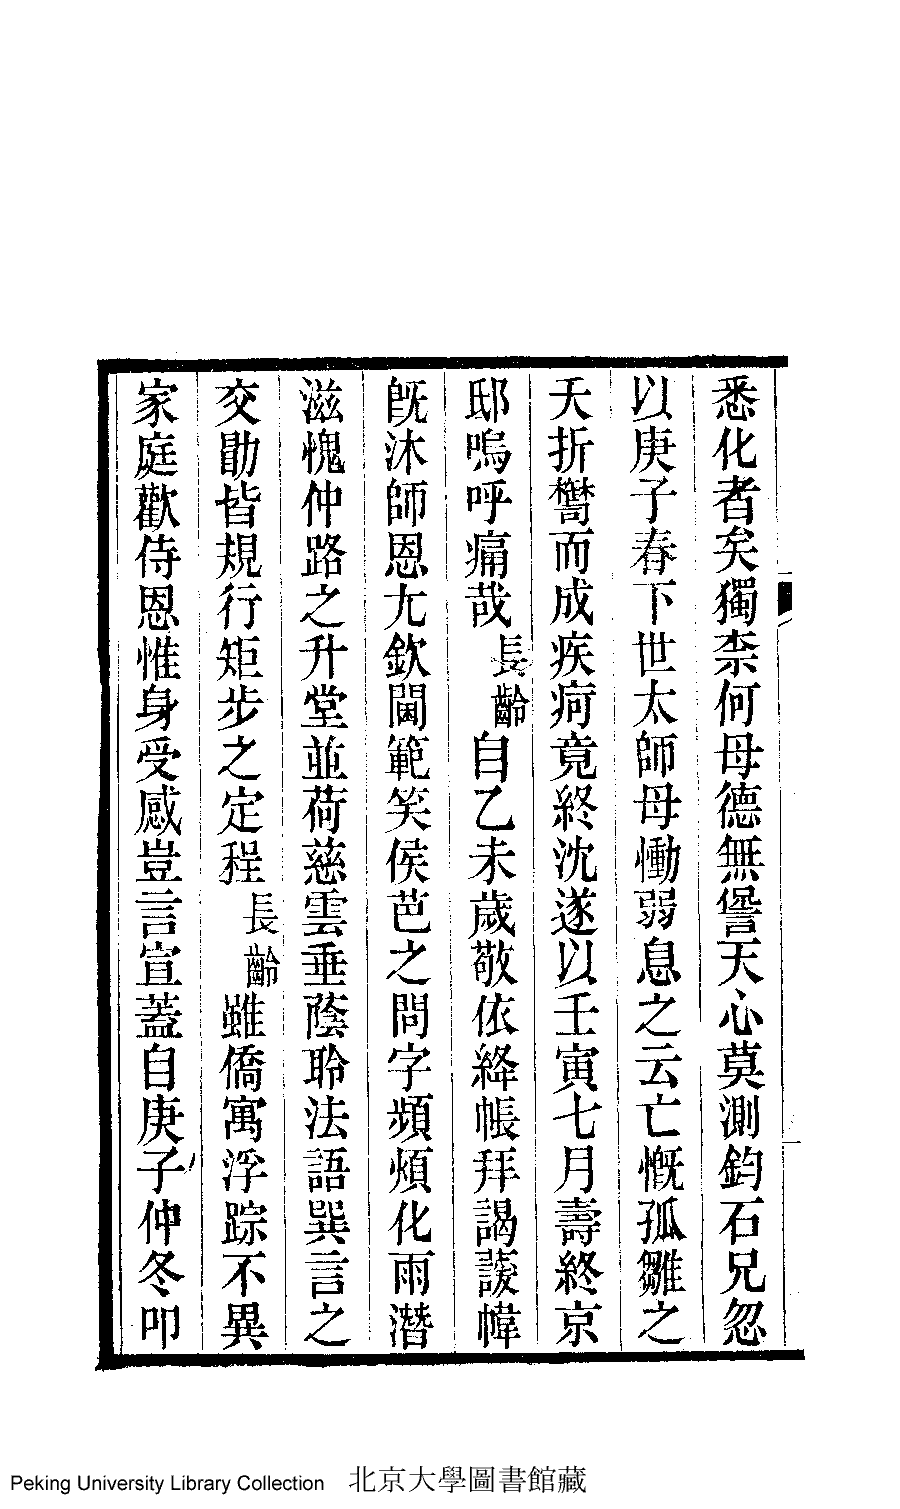 悉化者矣獨柰何母德無諐天心莫測鈞石兄忽
以庚子春下世太師母慟弱息之云亡慨孤雛之
夭折鬱而成疾疴竟終沈遂以壬寅七月壽終京
邸嗚呼痛哉長齡自乙未歲敬依絳帳拜謁諼幃
旣沐師恩尢欽閫範笑侯芭之問字頻煩化雨潛
滋愧仲路之升堂並荷慈雲垂蔭聆法語巽言之
交勖皆規行矩步之定程長齡雖僑寓浮踪不異
家庭歡侍恩惟身受感豈言宣蓋自庚子仲冬叩
Peking University Library Collection 北京大學圖書館藏